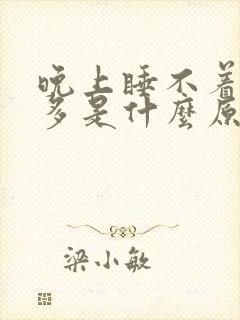 晚上睡不着
多是什麼原
梁小敏